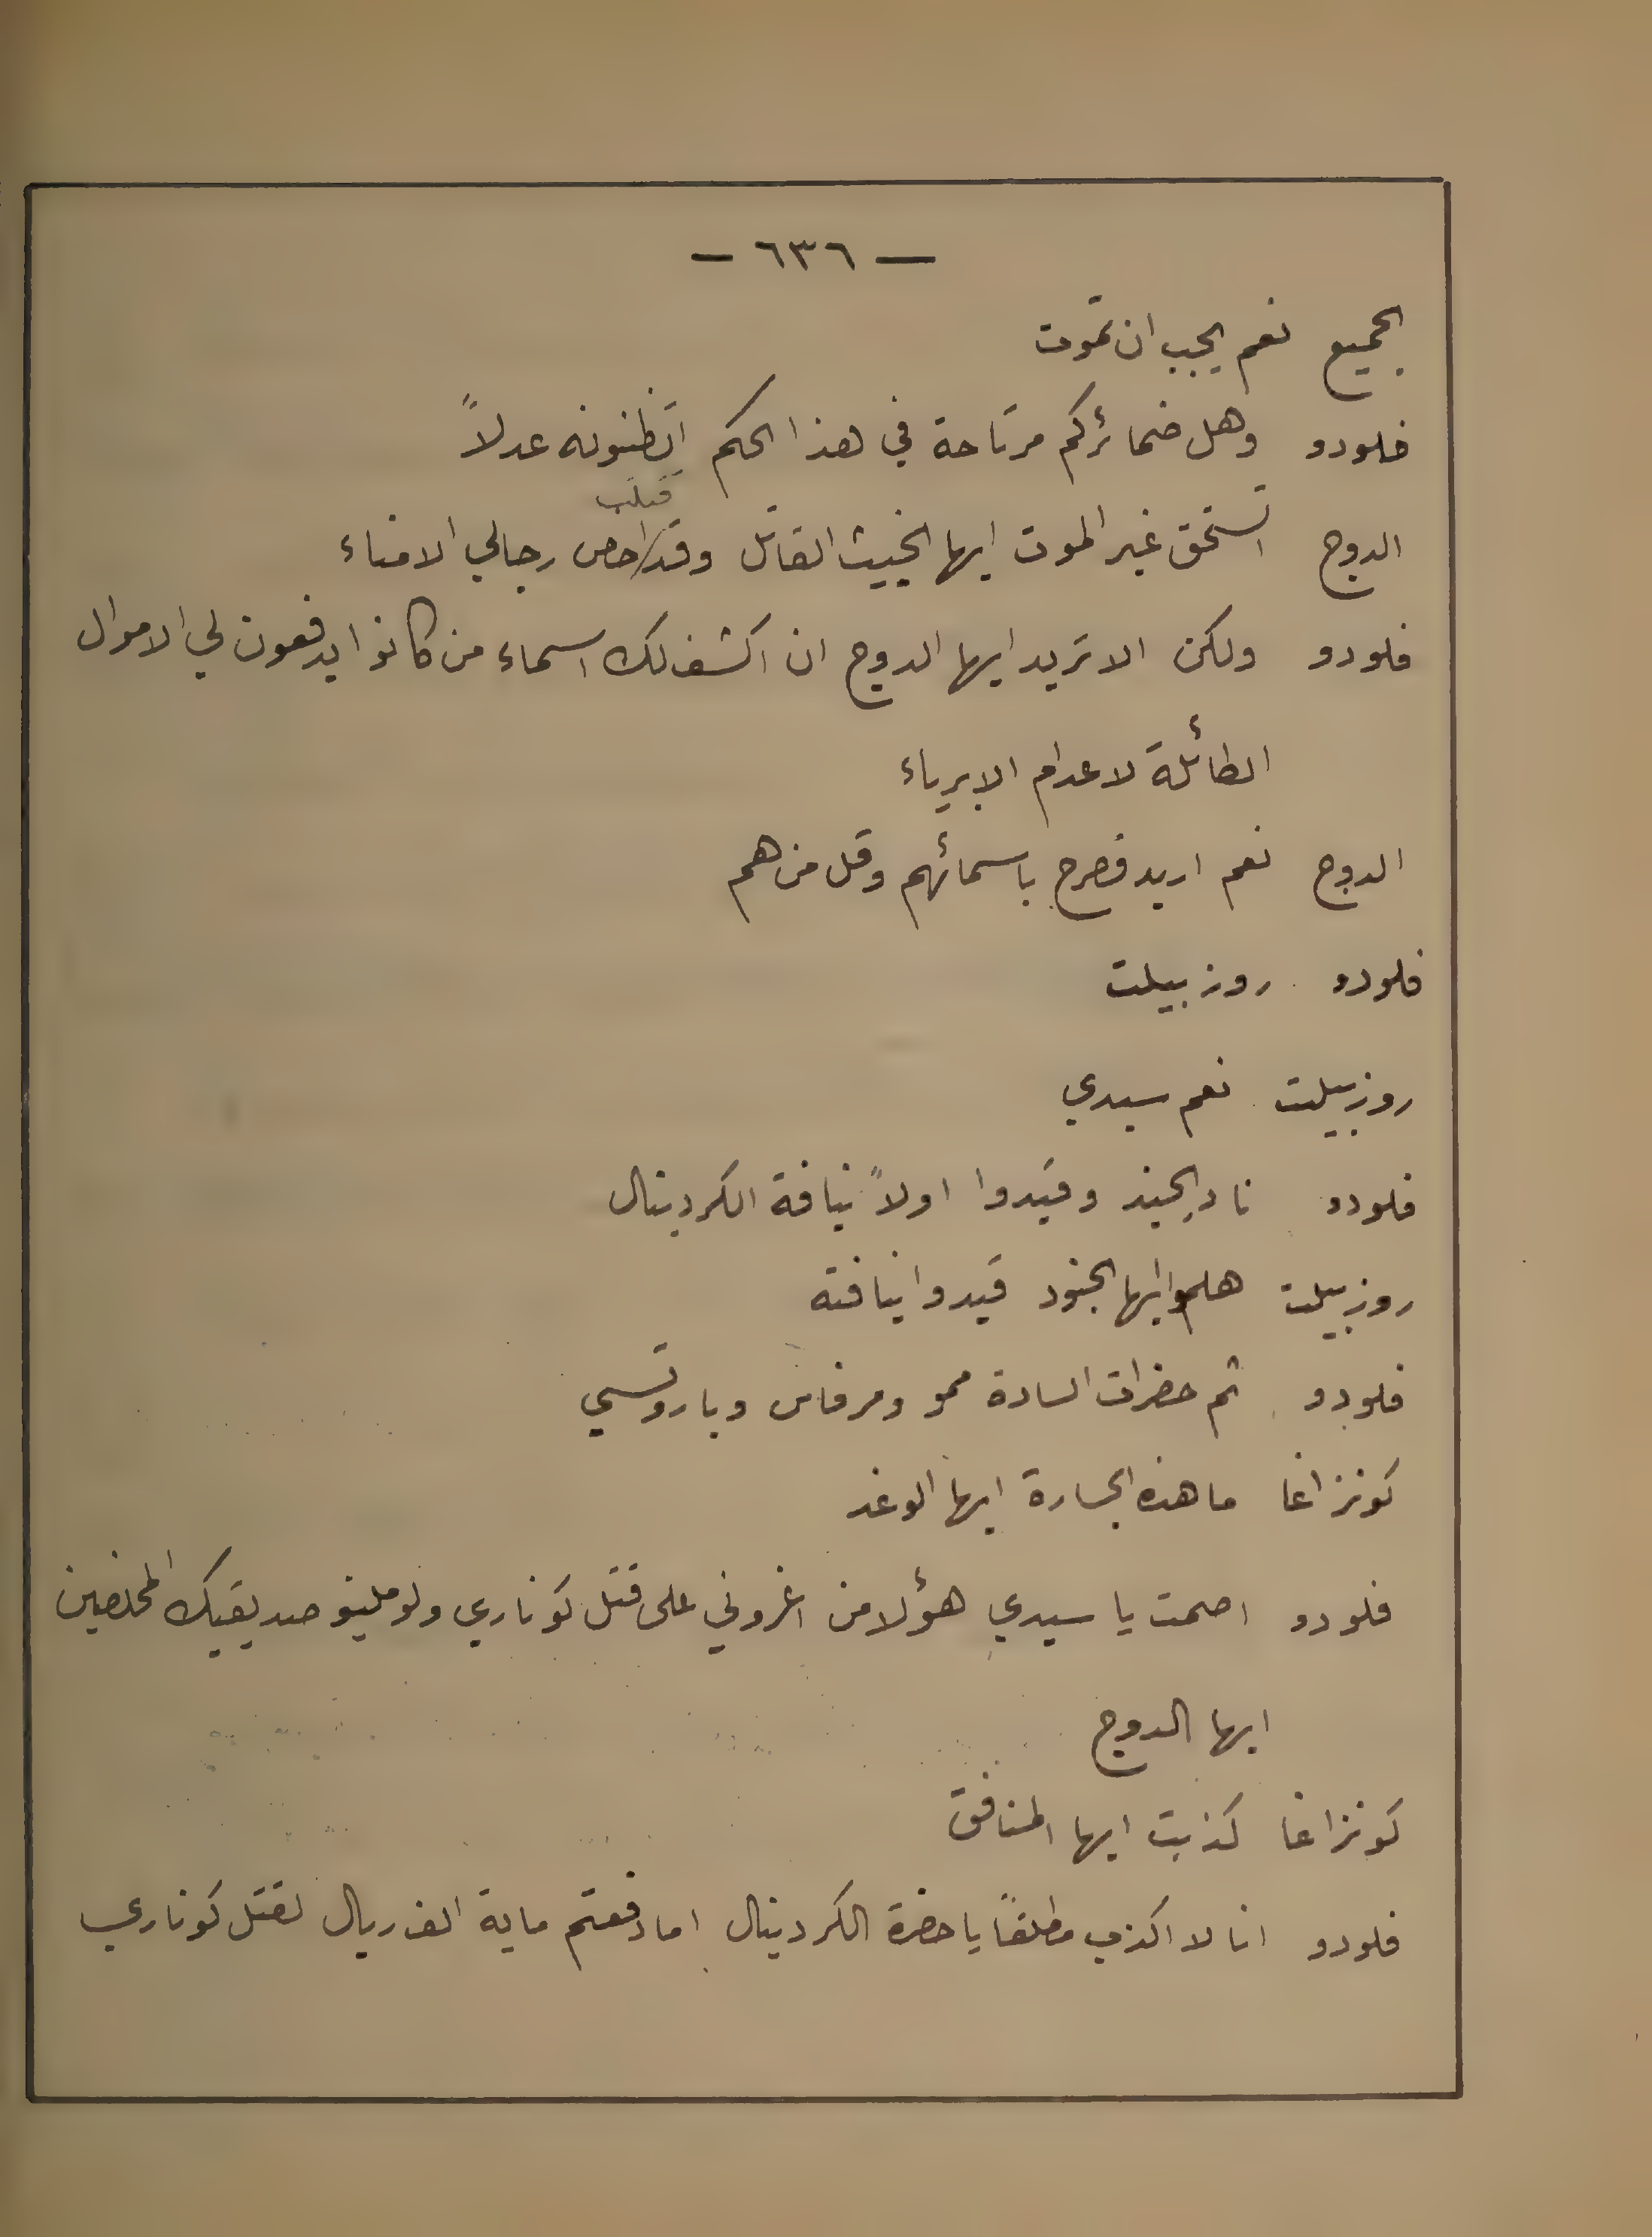 — ٦٣٦ —
الجميع نعم يجب ان تموت
فلودو وهل ضمائركم مرتاحة في هذا الحكم اتظنونه عدلاً
قتلت
الدوج اتستحق غير الموت ايها الخبيث القاتل وقد اخص رجالي الامناء
فلودو ولكن الا تريد ايها الدوج ان اكشف لك اسماء من كانوا يدفعون لي الاموال
الطائلة لاعدام الابرياء
الدوج نعم اريد فصرح باسمائهم وقل من هم
فلودو روزبيلت
روزبيلت نعم سيدي
فلودو ناد الجند وقيدوا اولاً نيافة الكردينال
روزبيلت هلموا ايها الجنود قيدوا نيافته
فلودو ثم حضرات السادة ممو ومرفاس وباروتسي
كونزاغا ما هذه الجسارة ايها الوغد
فلودو اصمت يا سيدي هؤلا من اغروني على قتل كوناري ولوملينو صديقيك المخلصين
ايها الدوج
كونزاغا كذبت ايها المنافق
فلودو انا لا اكذب مطلقاً يا حضرة الكردينال اما دفعتم ماية الف ريال لقتل كوناري